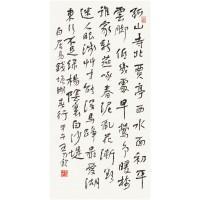 孤山寺北賈亭西水面初平
雲腳低幾處早鶯爭暖樹
誰家新燕啄春泥亂花漸欲
迷人眼淺草才能沒馬蹄最愛湖
東行不足綠楊陰裏白沙堤
白居易錢塘湖春行甲午